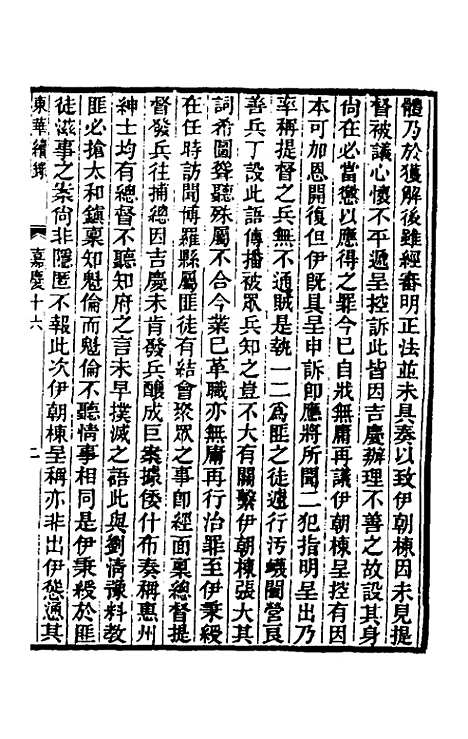 體乃於獲解後雖經審明正法並未具奏以致伊朝棟因未見提
督被議心懷不平遞呈控訴此皆因吉慶辦理不善之故設其身
尙在必當懲以應得之罪今已自戕無庸再議伊朝棟呈控有因
本可加恩開復但伊旣具呈申訴卽應將所聞二犯指明呈出乃
率稱提督之兵無不通賊是執一二爲匪之徒遽行污衊闔營良
善兵丁設此語傳播被眾兵知之豈不大有關繫伊朝棟張大其
詞希圖聳聽殊屬不合今業已革職亦無庸再行治罪至伊秉綬
在任時訪聞博羅縣屬匪徒有結會聚眾之事卽經面稟總督提
督發兵往捕總因吉慶未肯發兵釀成巨案據倭什布奏稱惠州
紳士均有總督不聽知府之言未早撲滅之語此與劉淸豫料教
匪必搶太和鎭稟知魁倫而魁倫不聽情事相同是伊秉綬於匪
徒滋事之案尙非隱匿不報此次伊朝棟呈稱亦非出伊慫慂其
東華續錄
嘉慶十六
二